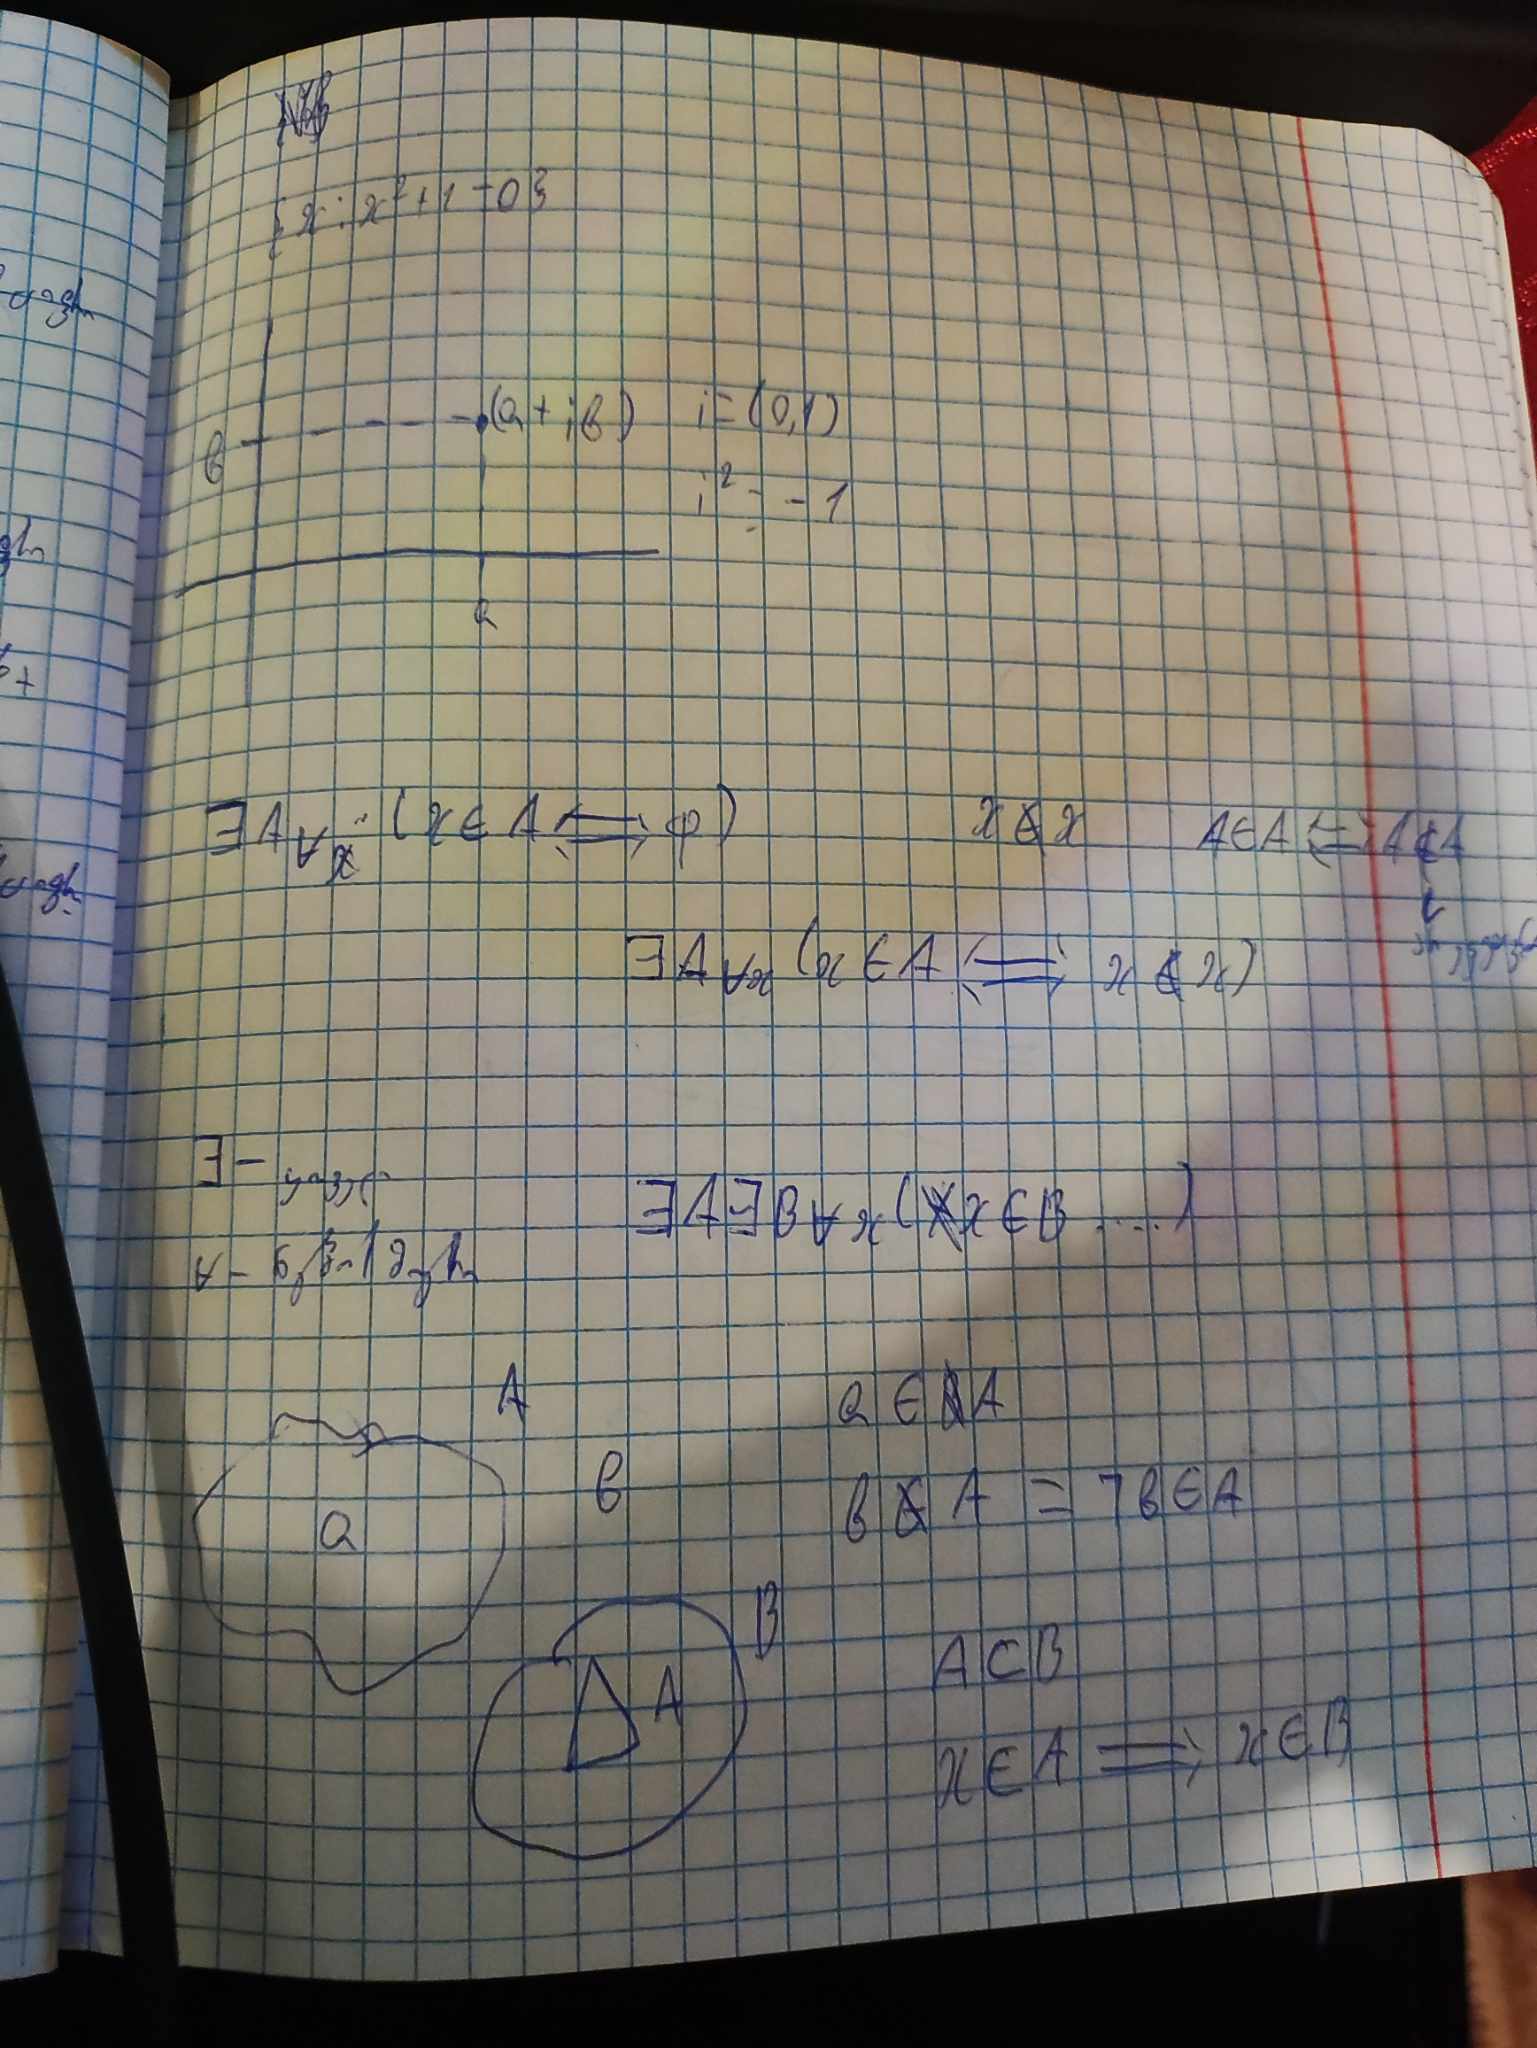 {x : x² + 1 = 0}
(a + ib) i = (0,1)
b
i² = -1
a
∃A ∀x : (x ∈ A ⟺ φ) x ∉ x A ∈ A ⟺ A ∉ A
∃A ∀x (x ∈ A ⟺ x ∉ x)
∃ -
∃A ∃B ∀x (x ∈ B ....)
∀ -
A a ∈ A
b
a
b ∉ A = ¬b ∈ A
B
A ⊂ B
A
x ∈ A ⟹ x ∈ B